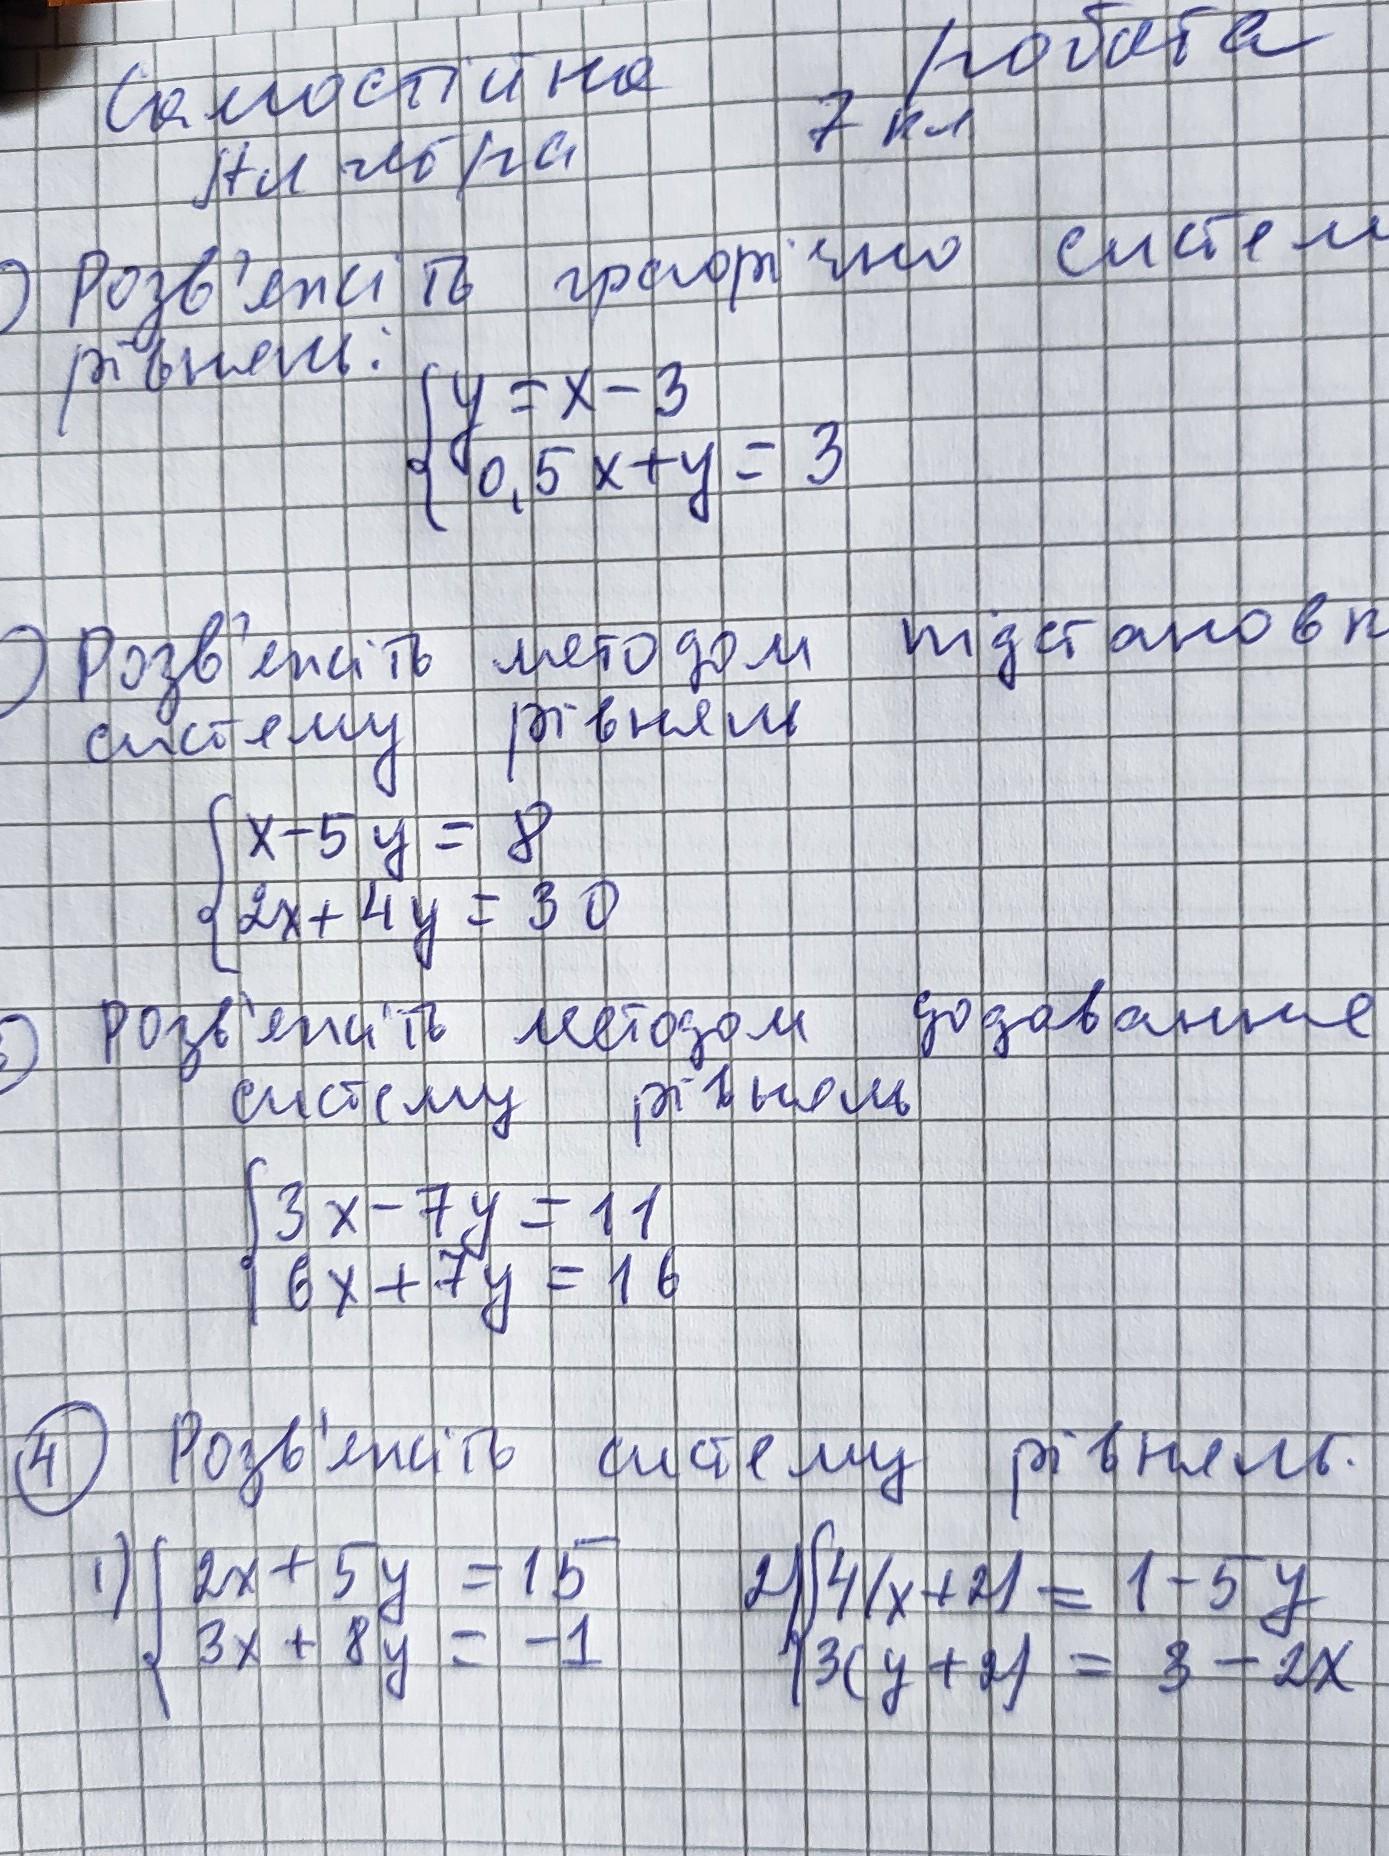 Самостійна робота
Алгебра 7 кл
) Розв'яжіть графічно систем
рівнянь:
y = x - 3
0,5x + y = 3
) Розв'яжіть методом підстановк
систему рівнянь
x - 5y = 8
2x + 4y = 30
3) Розв'яжіть методом додавання
систему рівнянь
3x - 7y = 11
6x + 7y = 16
4 Розв'яжіть систему рівнянь.
1) 2x + 5y = 15 2) 4(x+2) = 1 - 5y
3x + 8y = -1 3(y+2) = 3 - 2x